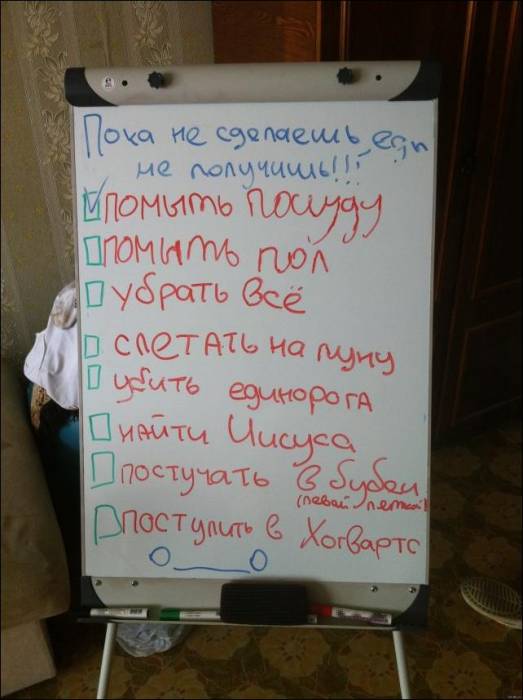 Пока не сделаешь, еды
не получишь!!!
помыть посуду
помыть пол
убрать всё
слетать на луну
убить единорога
найти Иисуса
постучать в бубен
(левой пяткой)
поступить в Хогвартс